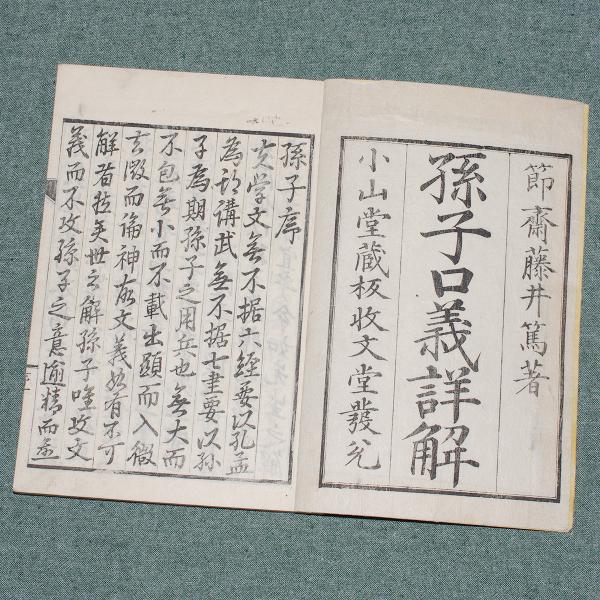 節齋藤井篤著
孫子口義詳解
小山堂蔵板收文堂發兌
孫子序
学文無不据六經要以孔孟
為講武無不据七書要以孫
子為期孫子之用兵也無大而
不包無小而不載出顯而入微
而論神故文義有不可
解者世之解孫子唯攻文
義而不攻孫子之意逾精而